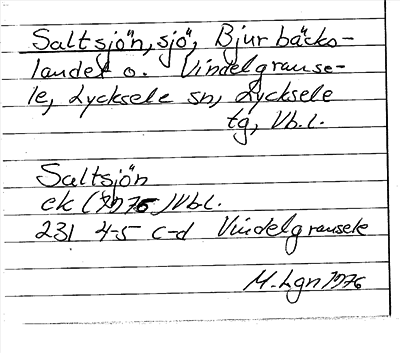 Saltsjön, sjö, Bjurbäcks-
landet o. Vindelgranse-
le, Lycksele sn, Lycksele
tg, Vb.l.
Saltsjön
ek (1976) Vb.l.
231 4-5 c-d Vindelgransele
M. Lgn 1976